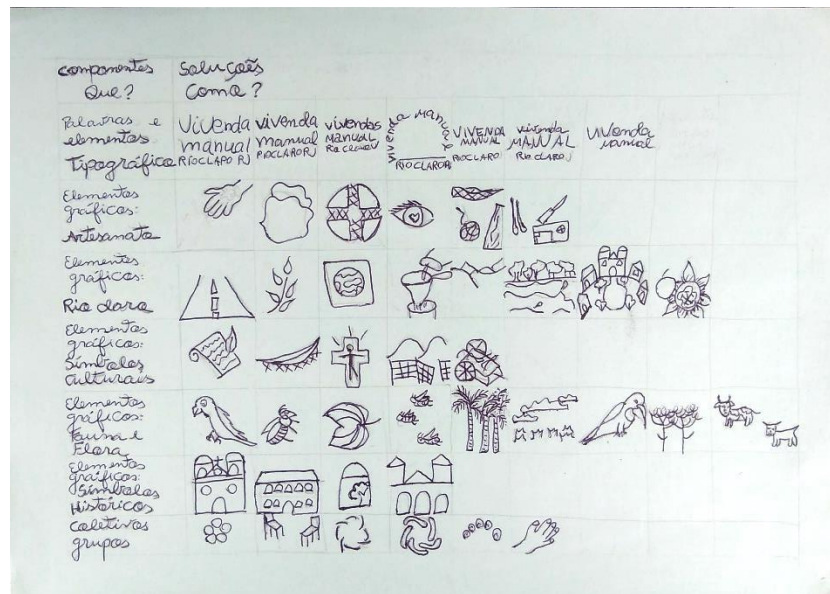 componentes Soluções
Que? Como?
Palavras e
elementos
Tipográficos
Vivenda
manual
RIO CLARO RJ
vivenda
manual
RIO CLARO RJ
vivendas
MANUAL
Rio Claro RJ
vivenda manual
RIO CLARO RJ
VIVENDA
MANUAL
RIO CLARO RJ
vivenda
MANUAL
Rio Claro RJ
Vivenda
manual
Elementos
gráficos:
Artesanato
Elementos
gráficos:
Rio claro
Elementos
gráficos:
Símbolos
culturais
Elementos
gráficos:
Fauna e
Flora
Elementos
gráficos:
Símbolos
Históricos
coletivos
grupos